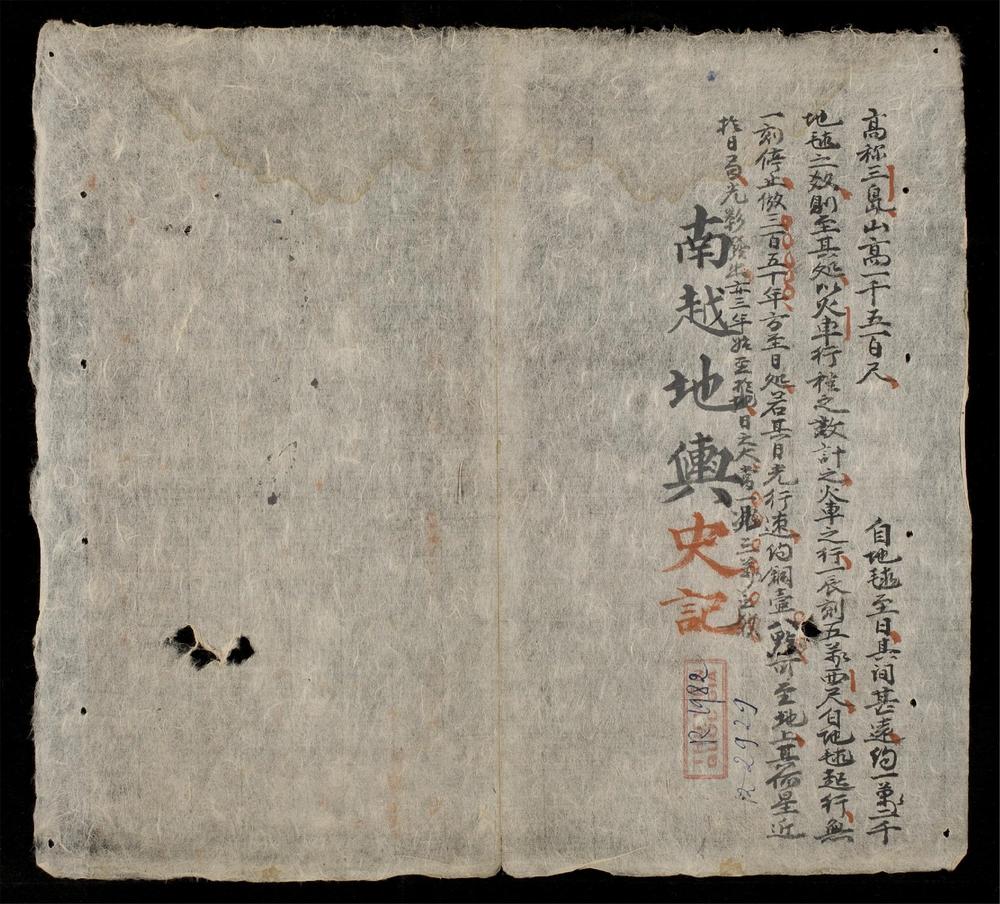 高称三島山高一千五百尺 自地毬至日其间甚遠約一萬二千
地毬之数則至其処以火車行程之数計之火車之行一辰刻五萬西尺自地毬起行無
一刻停止倣三百五十年方至日処若其日光行速約銅壶八點可至地上其何星近
於日局光影發出亦三年始至於地日之大當一兆三萬
南越地輿史記
R.1982
R.2929